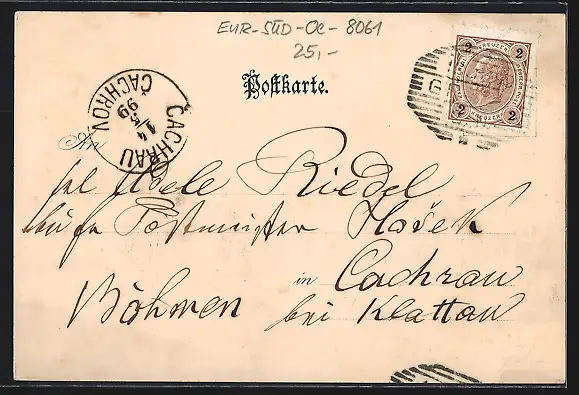 EUR-SÜD-OC-8061
25,-
Postkarte.
2 KREUZER 2
2 KREUZER 2
CACHRAU
14
5
99
ČACHROV
An
Adele Riedel
Postmeister Hošek
in Cachrau
Böhmen bei Klattau